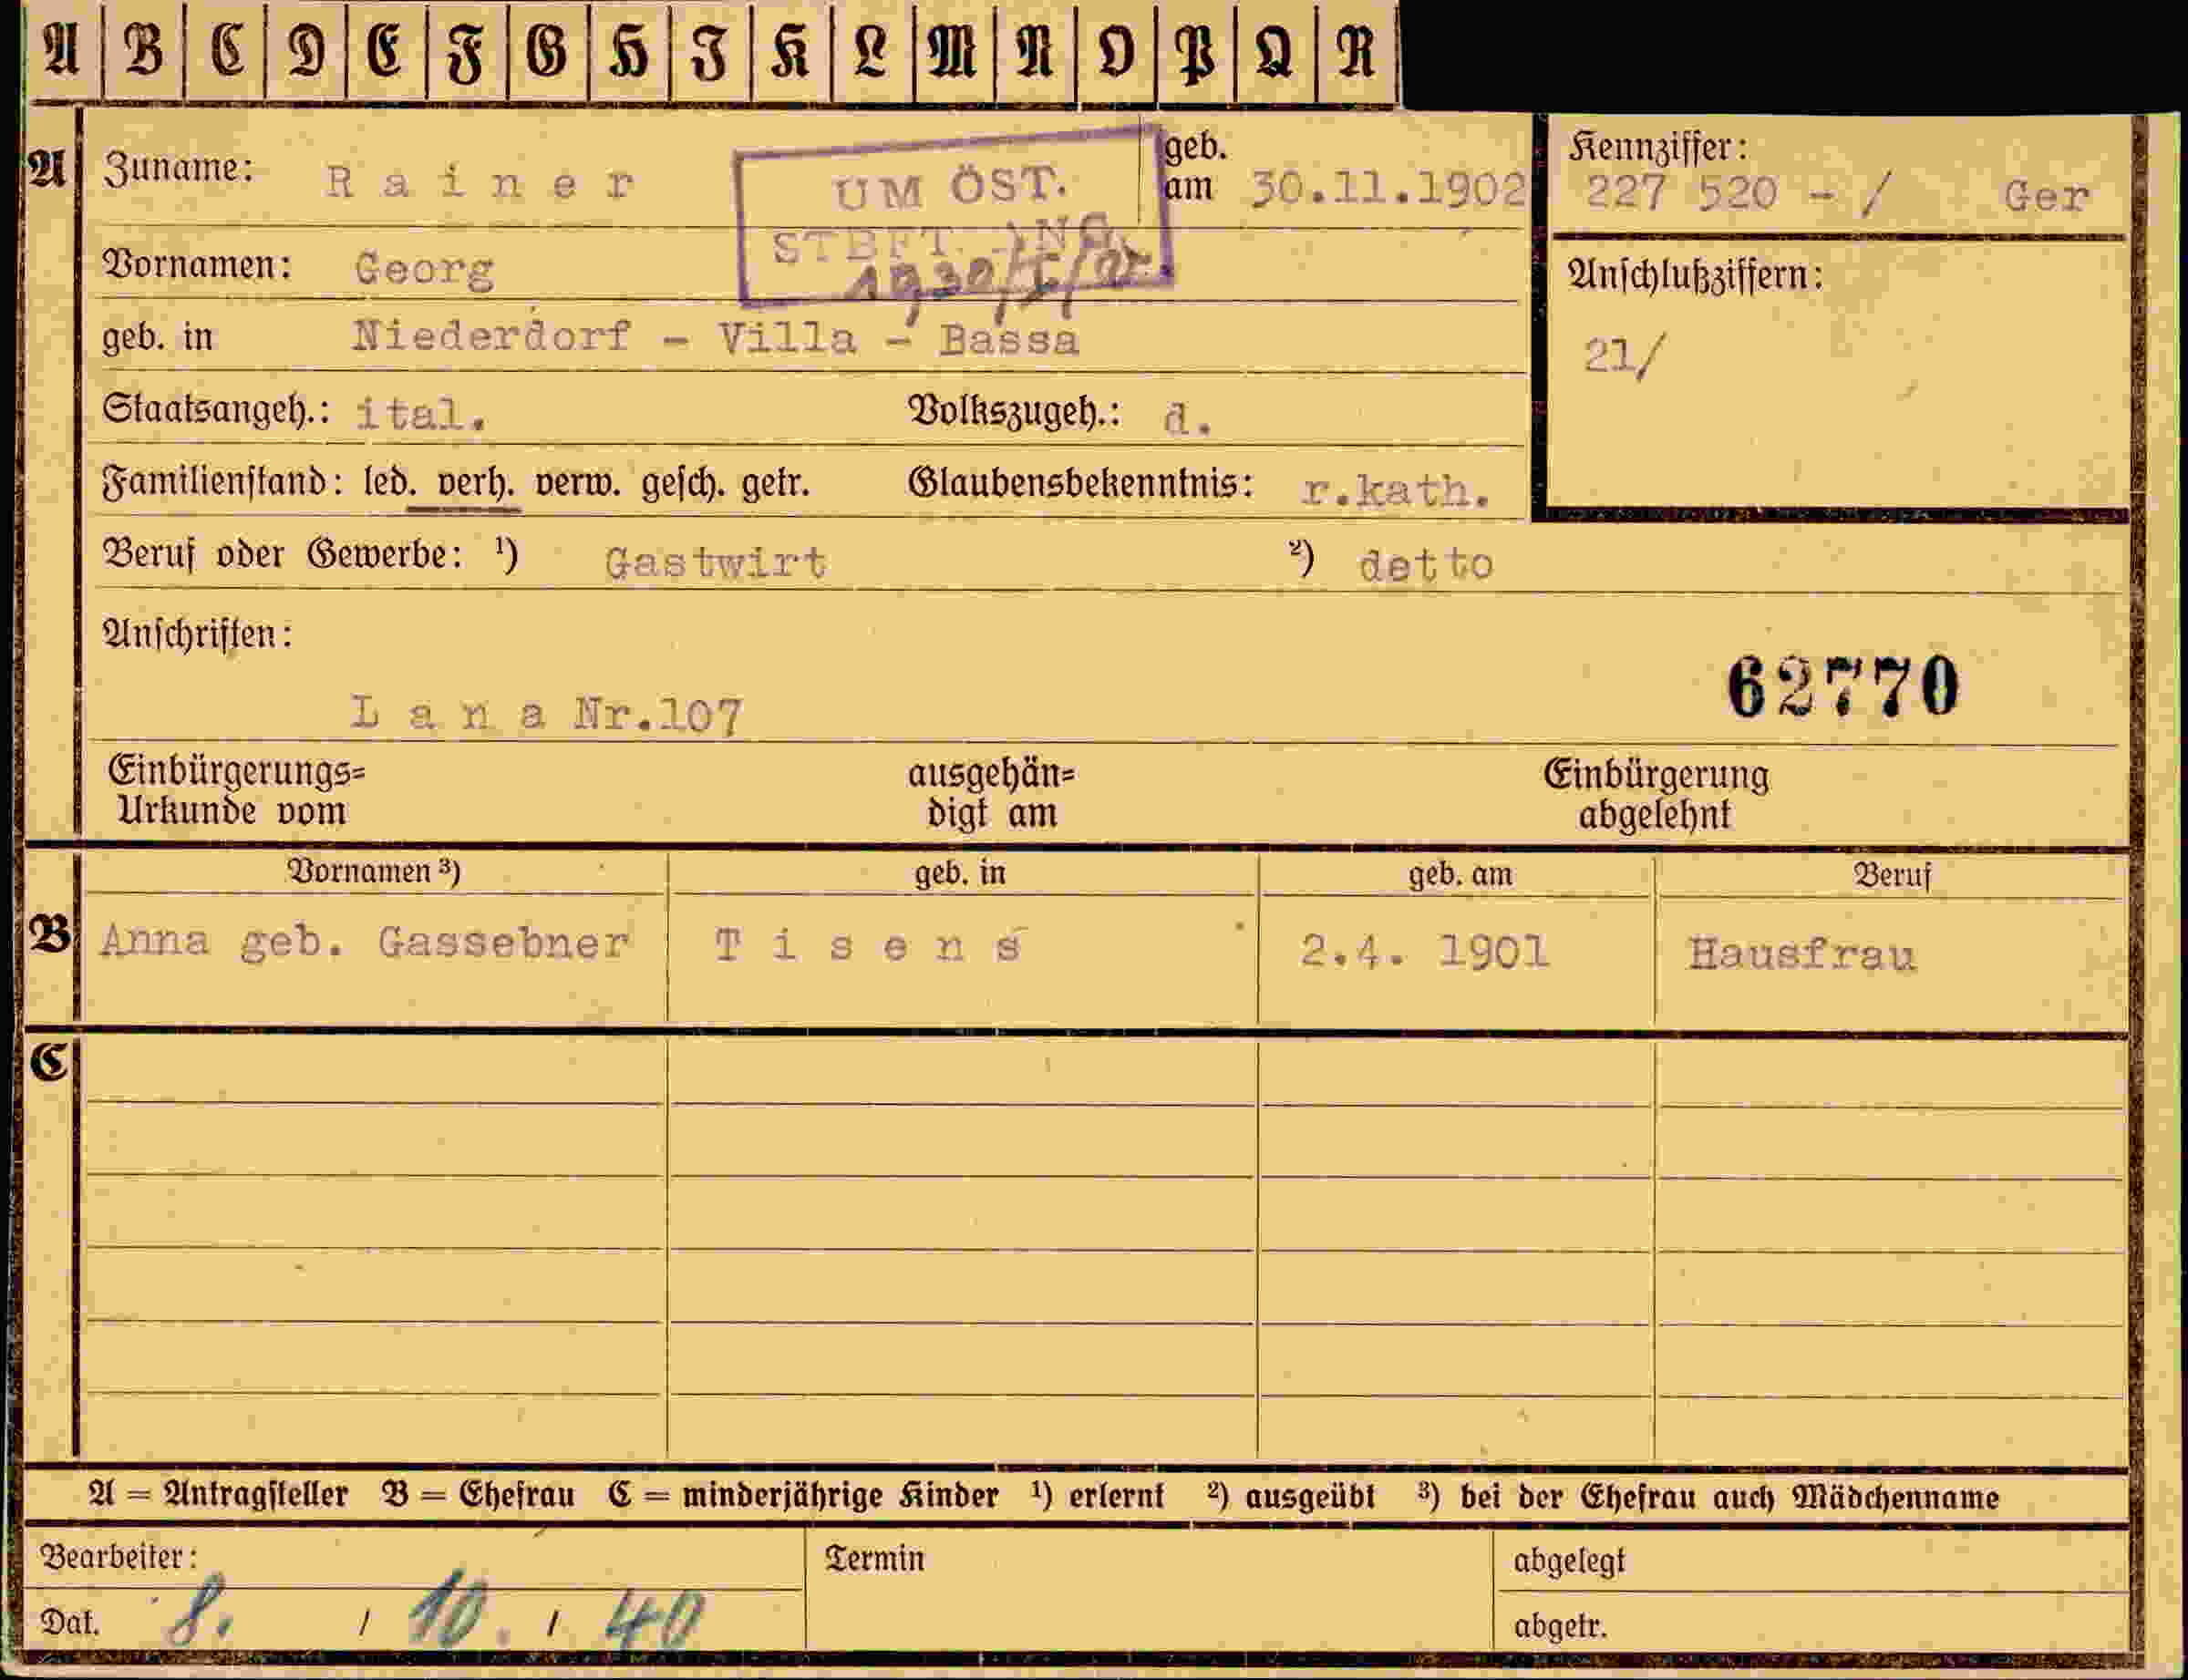 A B C D E F G H I K L M N O P Q R
A
Zuname: Rainer
geb. am 30.11.1902
Kennziffer:
227 520 - / Ger
UM ÖST.
Vornamen: Georg
Anschlußziffern:
21/
geb. in Niederdorf - Villa - Bassa
Staatsangeh.: ital. Volkszugeh.: d.
Familienstand: led. verh. verw. gesch. getr. Glaubensbekenntnis: r.kath.
Beruf oder Gewerbe: ¹) Gastwirt ²) detto
Anschriften:
62770
Lana Nr.107
Einbürgerungs= ausgehän= Einbürgerung
Urkunde vom digt am abgelehnt
Vornamen ³) geb. in geb. am Beruf
B Anna geb. Gassebner Tisens 2.4. 1901 Hausfrau
C
A = Antragsteller B = Ehefrau C = minderjährige Kinder ¹) erlernt ²) ausgeübt ³) bei der Ehefrau auch Mädchenname
Bearbeiter: Termin abgelegt
Dat. 8. / 10. / 40 abgetr.